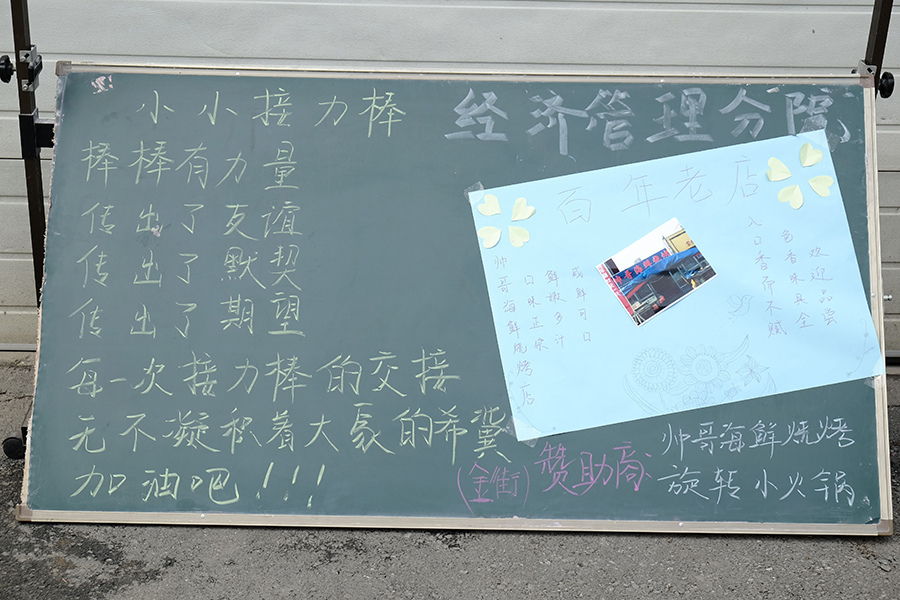 小小接力棒
棒棒有力量
传出了友谊
传出了默契
传出了期望
每一次接力棒的交接
无不凝积着大家的希冀
加油吧!!!
经济管理分院
百年老店
欢迎品尝
色香味具全
入口香而不腻
咸鲜可口
鲜嫩多汁
口味正宗
帅哥海鲜烧烤店
(金街)赞助商
帅哥海鲜烧烤
旋转小火锅